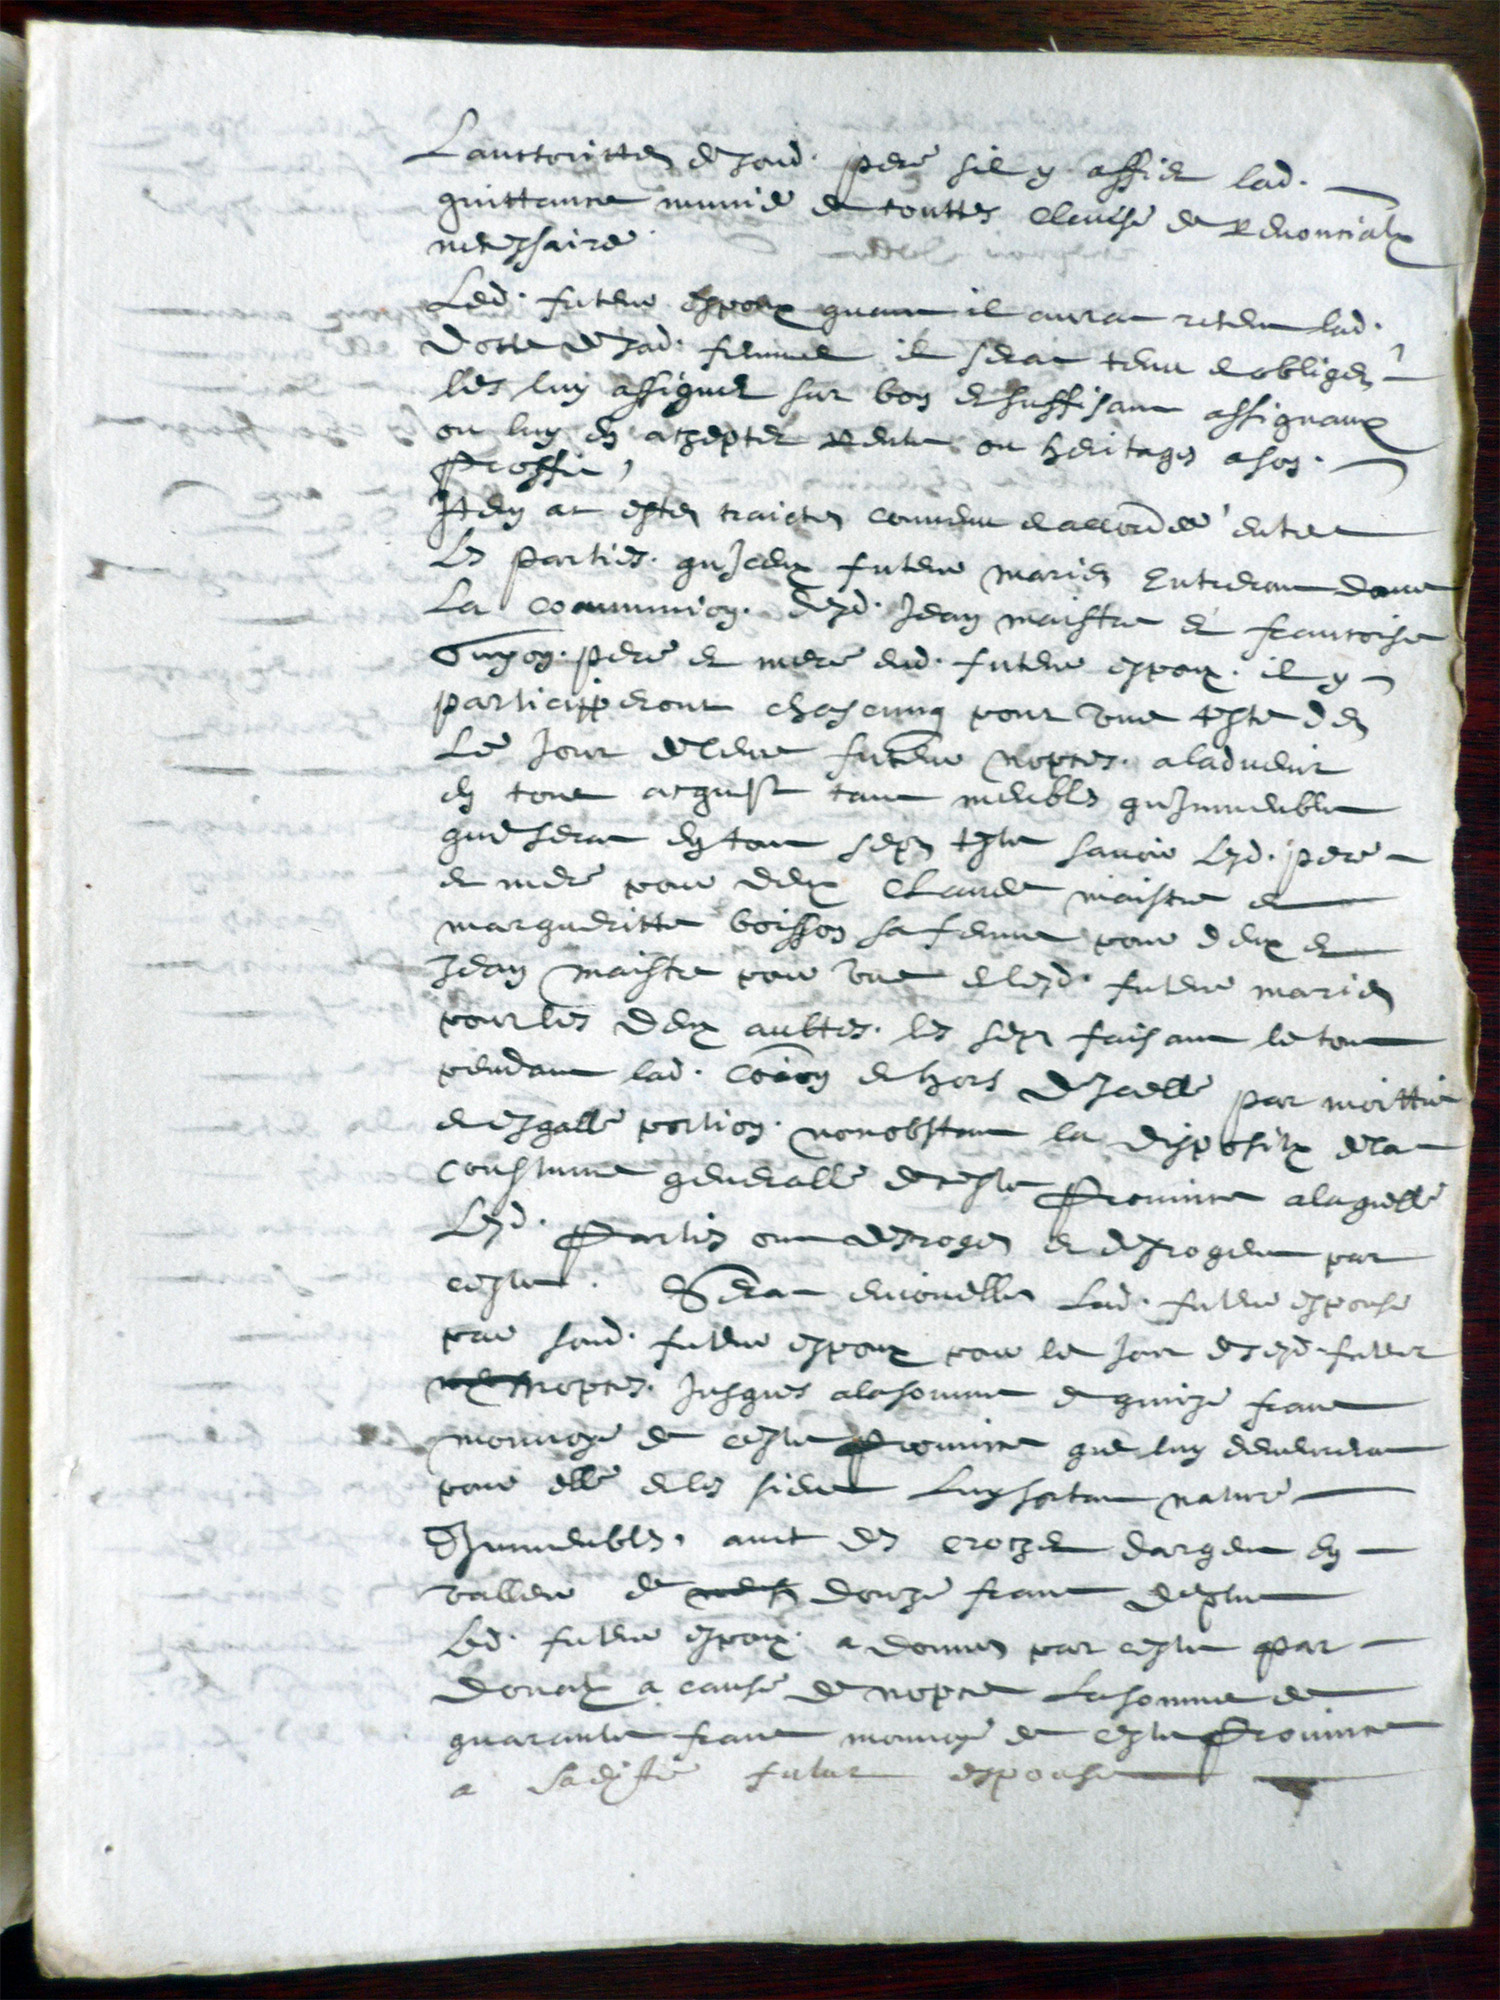 Lauctorittes de soud. pere sil y affier lad.
quittance munie de touttes clause de Renonciaōn
necessaire
Led. futeur espoux quant il aurat receu lad.
dotte de sad. femme il serat tenu et obligez
les luy assigner sur bon et suffisant assignaux
ou luy en aczepter Rente ou heritages a son
Proffit,
Item at estez traictez convenu et accordée entre
Les parties. qu Jceux futeur mariez Entreront dans
La Communion. desd. Jean maistre et francoise
Guyon. pere et mere dud. futeur espoux. il y
participperont chascung pour une teste dez
Le Jour de leurs futeur nopces. a ladvenir
en tout acquest tant meubles qu Jmmeuble
que serat en tout sept teste savoir Lesd. pere
et mere pour deux Claude maistre et
margueritte boisson sa femme pour deux et
Jean maistre pour une et lesd. futeur mariez
pour les deux aultres. les sept faisant le tout
pendant lad. Coīon et hors d Jcelle par moittie
et esgalle portion. nonobstant la dispositōn de la
Coustume generalle de ceste Province a laquelle
Lesd. Parties ont desroges et desrogent par
ceste. Serat enjouelles Lad. futeur espouse
par soud. futeur espoux pour le Jour desd. futeur
nopces. Jusques a la somme de quinze franc
monnoye de ceste Province que luy demeureront
pour elle et les siens Luy sortant nature
D Jmmeubles. avec des crozet dargent en
valleur de douze franc de plus
Led. futeur espoux. a donnez par ceste par
donaōn a cause de nopce La somme de
quarante franc monnoye de ceste Province
a sadiste futur espouse